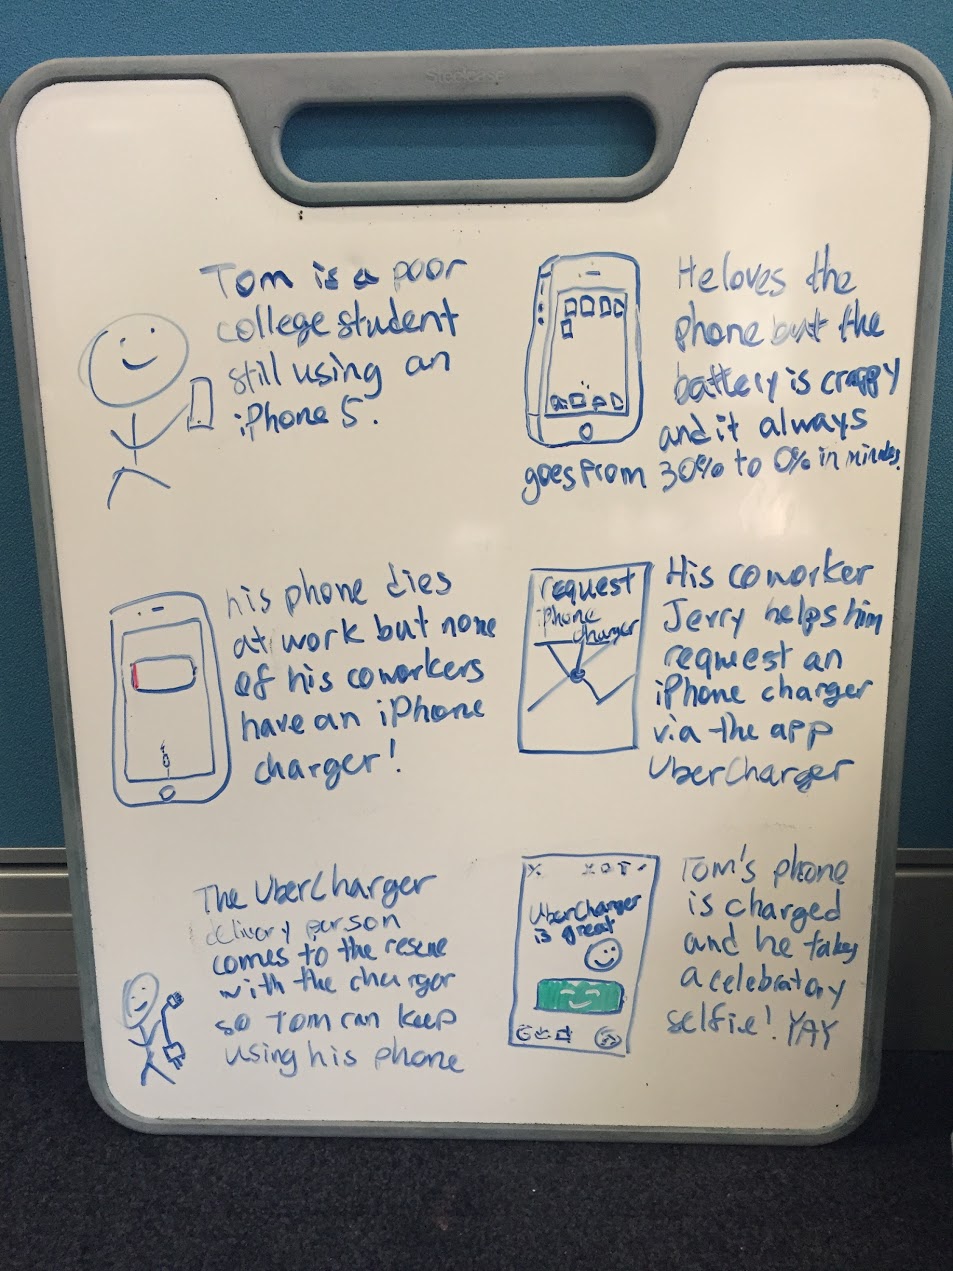 Steelcase
Tom is a poor
college student
still using an
iPhone 5.
He loves the
phone but the
battery is crappy
and it always
goes from 30% to 0% in minutes.
his phone dies
at work but none
of his coworkers
have an iPhone
charger!
request
iPhone
charger
His coworker
Jerry helps him
request an
iPhone charger
via the app
UberCharger
The UberCharger
delivery person
comes to the rescue
with the charger
so Tom can keep
using his phone
UberCharger
is great
Tom's phone
is charged
and he takes
a celebratory
selfie! YAY